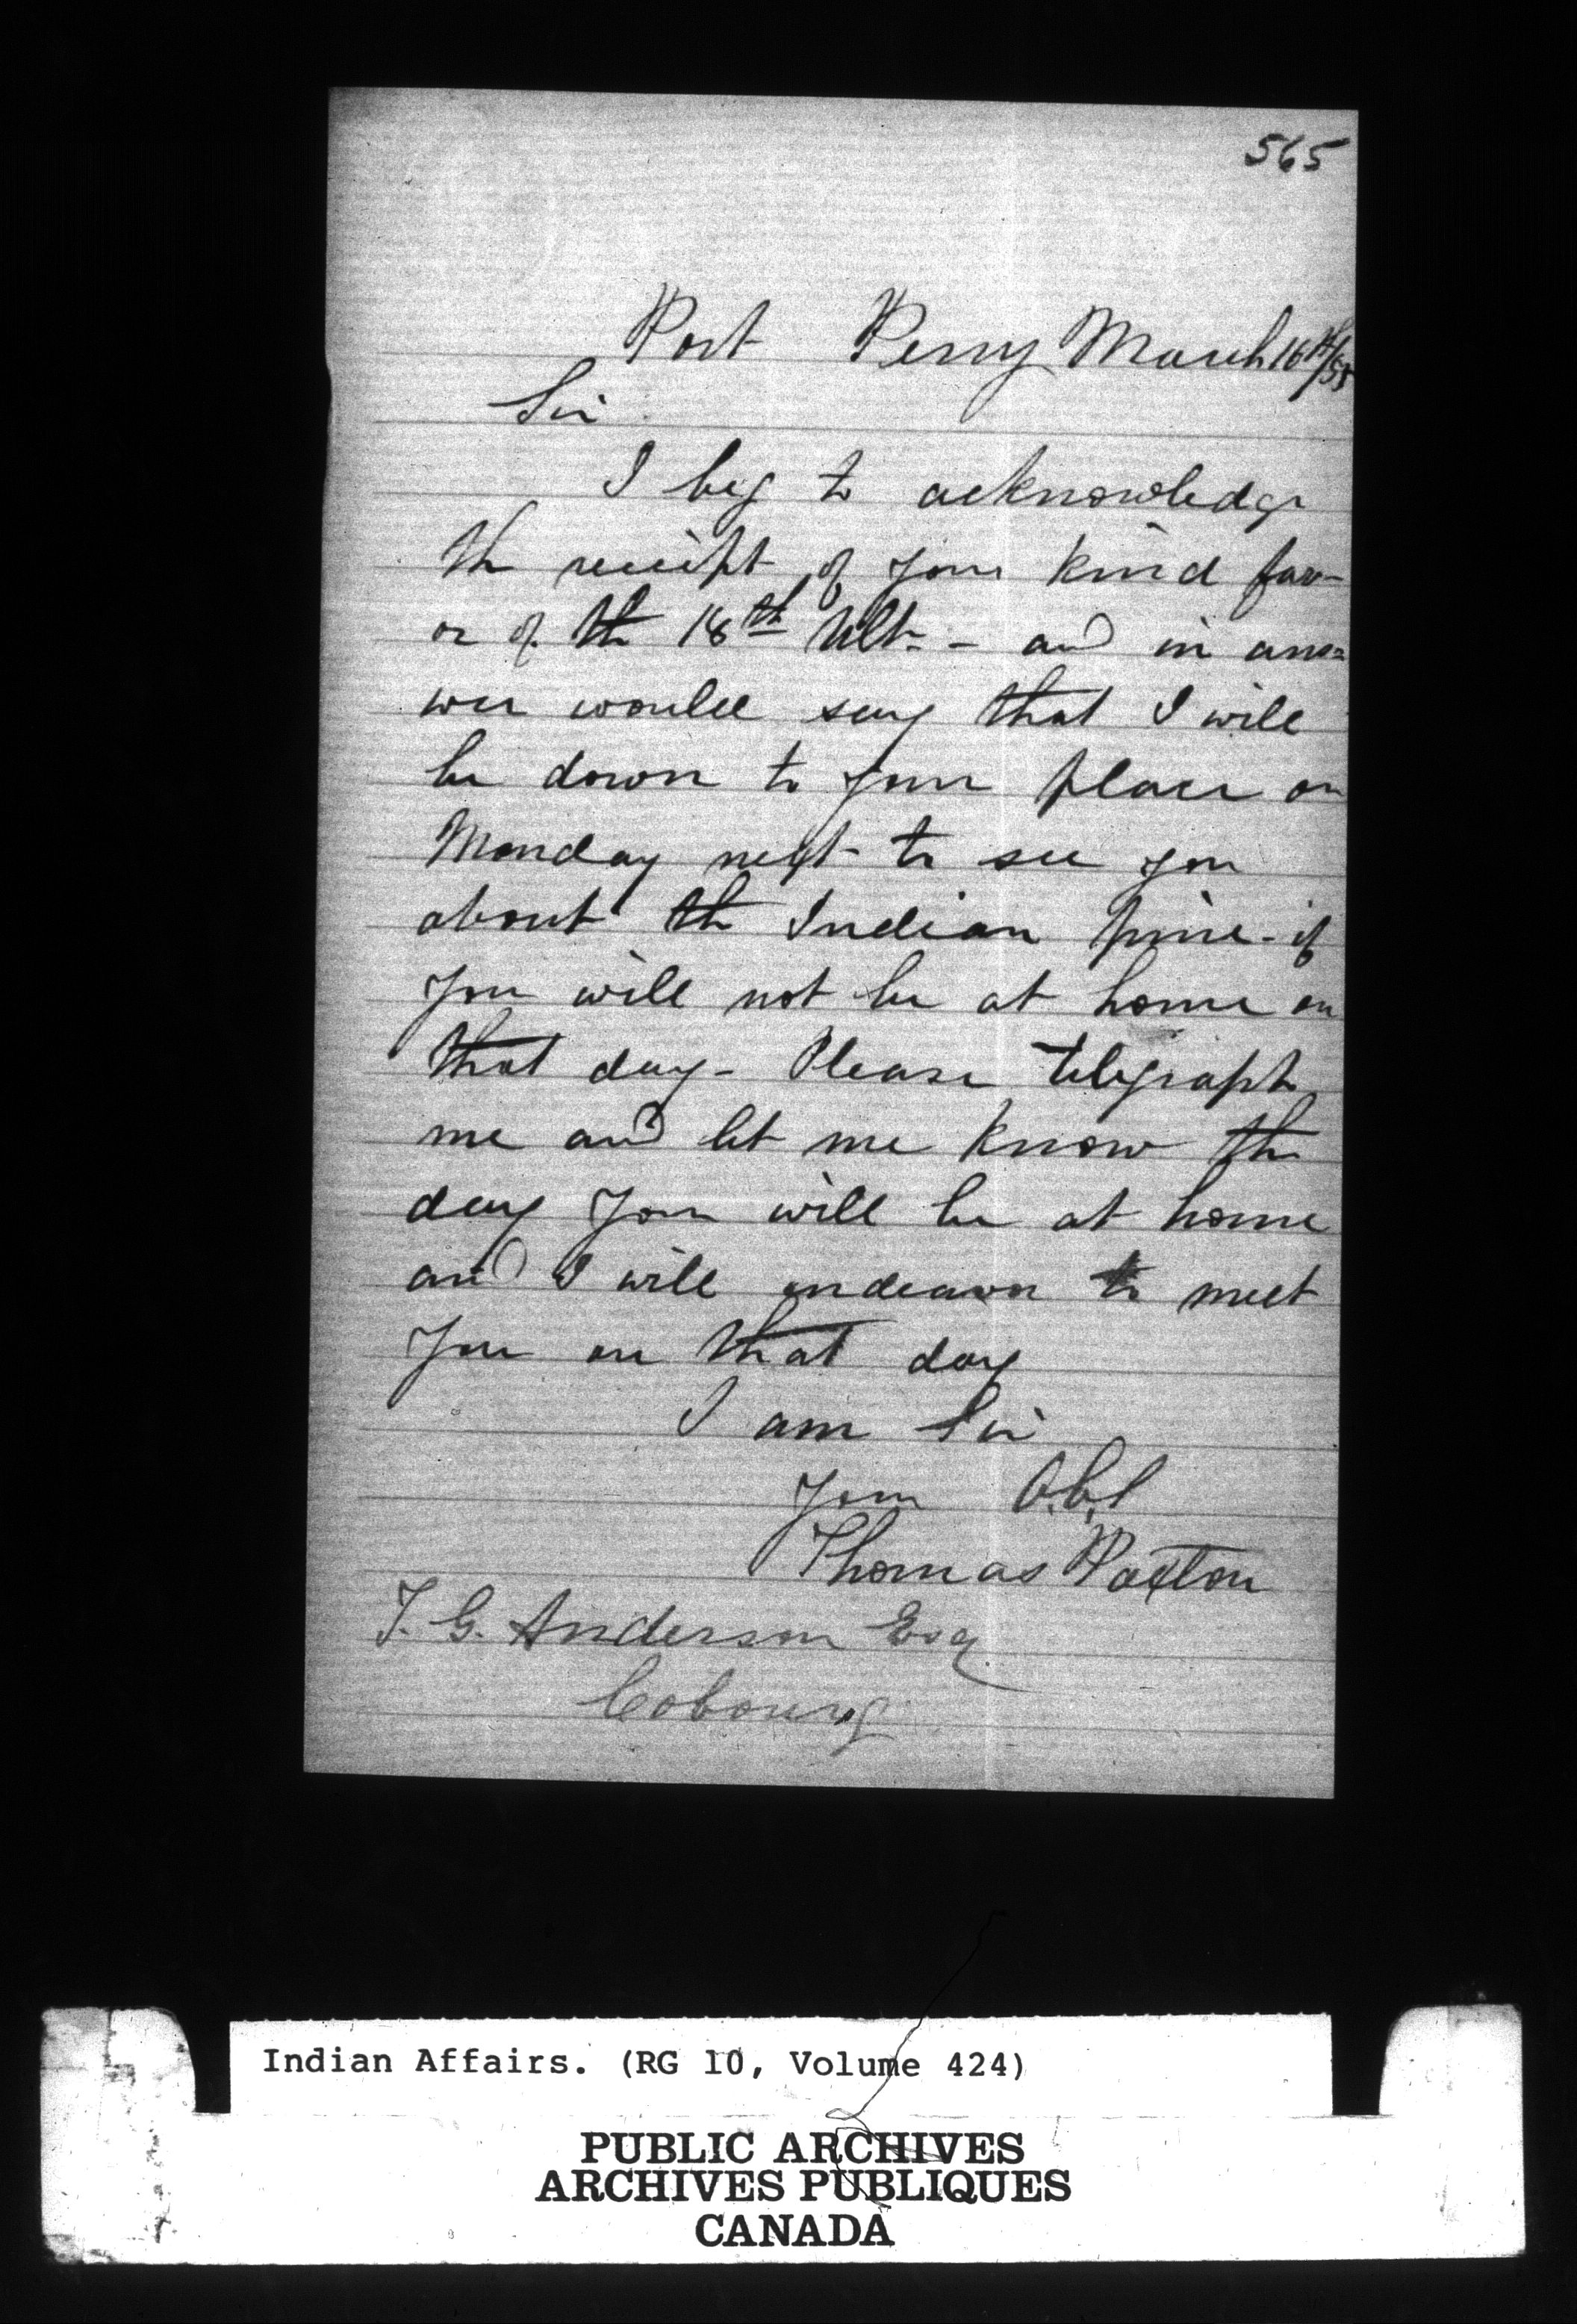 565
Port Perry March 16th/58
Sir
I beg to acknowledge
the receipt of your kind fav-
or of the 18th Ult. - and in ans=
wer would say that I will
be down to your place on
Monday next to see you
about the Indian pine - if
you will not be at home on
that day - Please telegraph
me and let me know the
day you will be at home
and I will endeavor to meet
you on that day
I am Sir
Your Obt
Thomas Paxton
T. G. Anderson Esq.
Cobourg
Indian Affairs. (RG 10, Volume 424)
PUBLIC ARCHIVES
ARCHIVES PUBLIQUES
CANADA